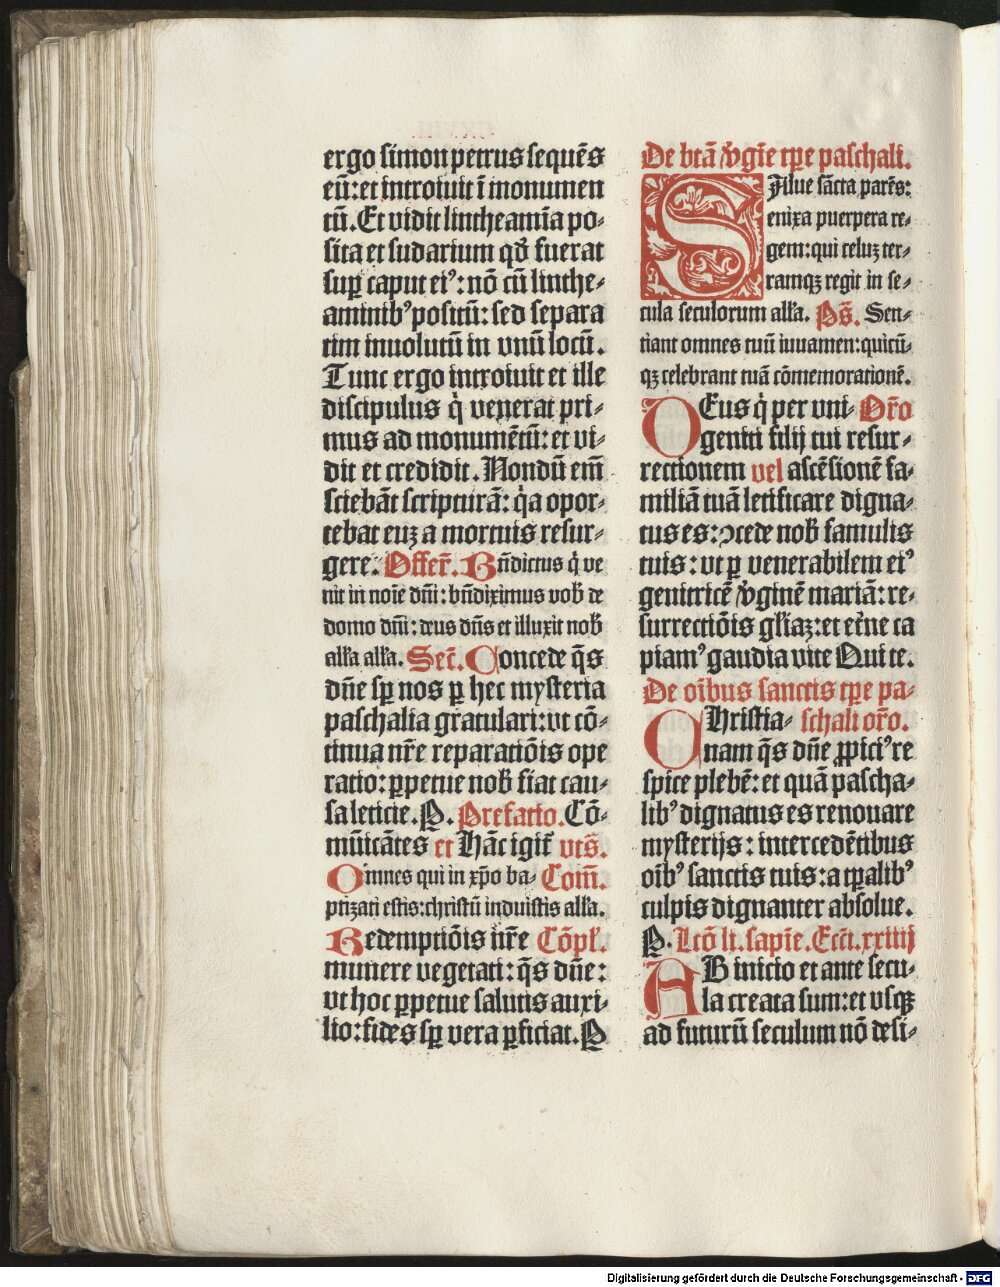 ergo simon petrus sequēs
eū: et introiuit ī monumen
tū. Et vidit lintheamīa po⸗
sita et sudarium qđ fuerat
suꝑ caput ei᷒: nō cū linthe⸗
aminib᷒ positū: sed separa
tim inuolutū in vnū locū.
Tunc ergo introiuit et ille
discipulus q̇ venerat pri⸗
mus ad monumētū: et vi⸗
dit et credidit. Nondū em̄
sciebāt scripturā: q̇a opor⸗
tebat euꝫ a mortuis resur⸗
gere. Offer̄. Bn̄dictus q̇ ve
nit in noīe dn̄i: bn̄diximus vob̄ de
domo dn̄i: deus dn̄s et illuxit nob̄
alľa alľa. Secř. Concede q̄s
dn̄e sꝑ nos ꝑ hec mysteria
paschalia gratulari: vt cō⸗
tinua nr̄e reparatiōis ope
ratio: ꝑpetue nob̄ fiat cau⸗
sa leticie. P. Prefatio. Cō⸗
mūicātes et Hāc igit̄ vts̄.
Omnes qui in xp̄o ba⸗ Com̄.
ptizati estis: christū induistis alľa.
Redemptiōis nr̄e Cōpľ.
munere vegetati: q̄s dn̄e:
vt hoc ꝑpetue salutis auxi⸗
lio: fides sꝑ vera ꝑficiat. P
De btā v̄gīe tꝑe paschali.
SAlue sācta parēs:
enixa puerpera re⸗
gem: qui celuꝫ ter⸗
ramqꝫ regit in se⸗
cula seculorum alľa. Ps̄. Sen⸗
tiant omnes tuū iuuamen: quicū⸗
qꝫ celebrant tuā cōmemorationē.
DEus q̇ per vni⸗ Or̄o
geniti filij tui resur⸗
rectionem vel ascēsionē fa⸗
miliā tuā letificare digna⸗
tus es: ꝯcede nob̄ famulis
tuis: vt ꝑ venerabilem ei᷒
genitricē v̄ginē mariā: re⸗
surrectiōis gľiaꝫ: et etˀne ca
piam᷒ gaudia vite Qui te.
De oībus sanctis tꝑe pa⸗
CHristia⸗ schali or̄o.
nam q̄s dn̄e ꝓpici᷒ re
spice plebē: et quā pascha⸗
lib᷒ dignatus es renouare
mysterijs: intercedētibus
oīb᷒ sanctis tuis: a tꝑalib᷒
culpis dignanter absolue.
P. Lcō li. sapīe. Eccī. xxiiij
AB inicio et ante secu⸗
la creata sum: et vsqꝫ
ad futurū seculum nō desi⸗
Digitalisierung gefördert durch die Deutsche Forschungsgemeinschaft - DFG